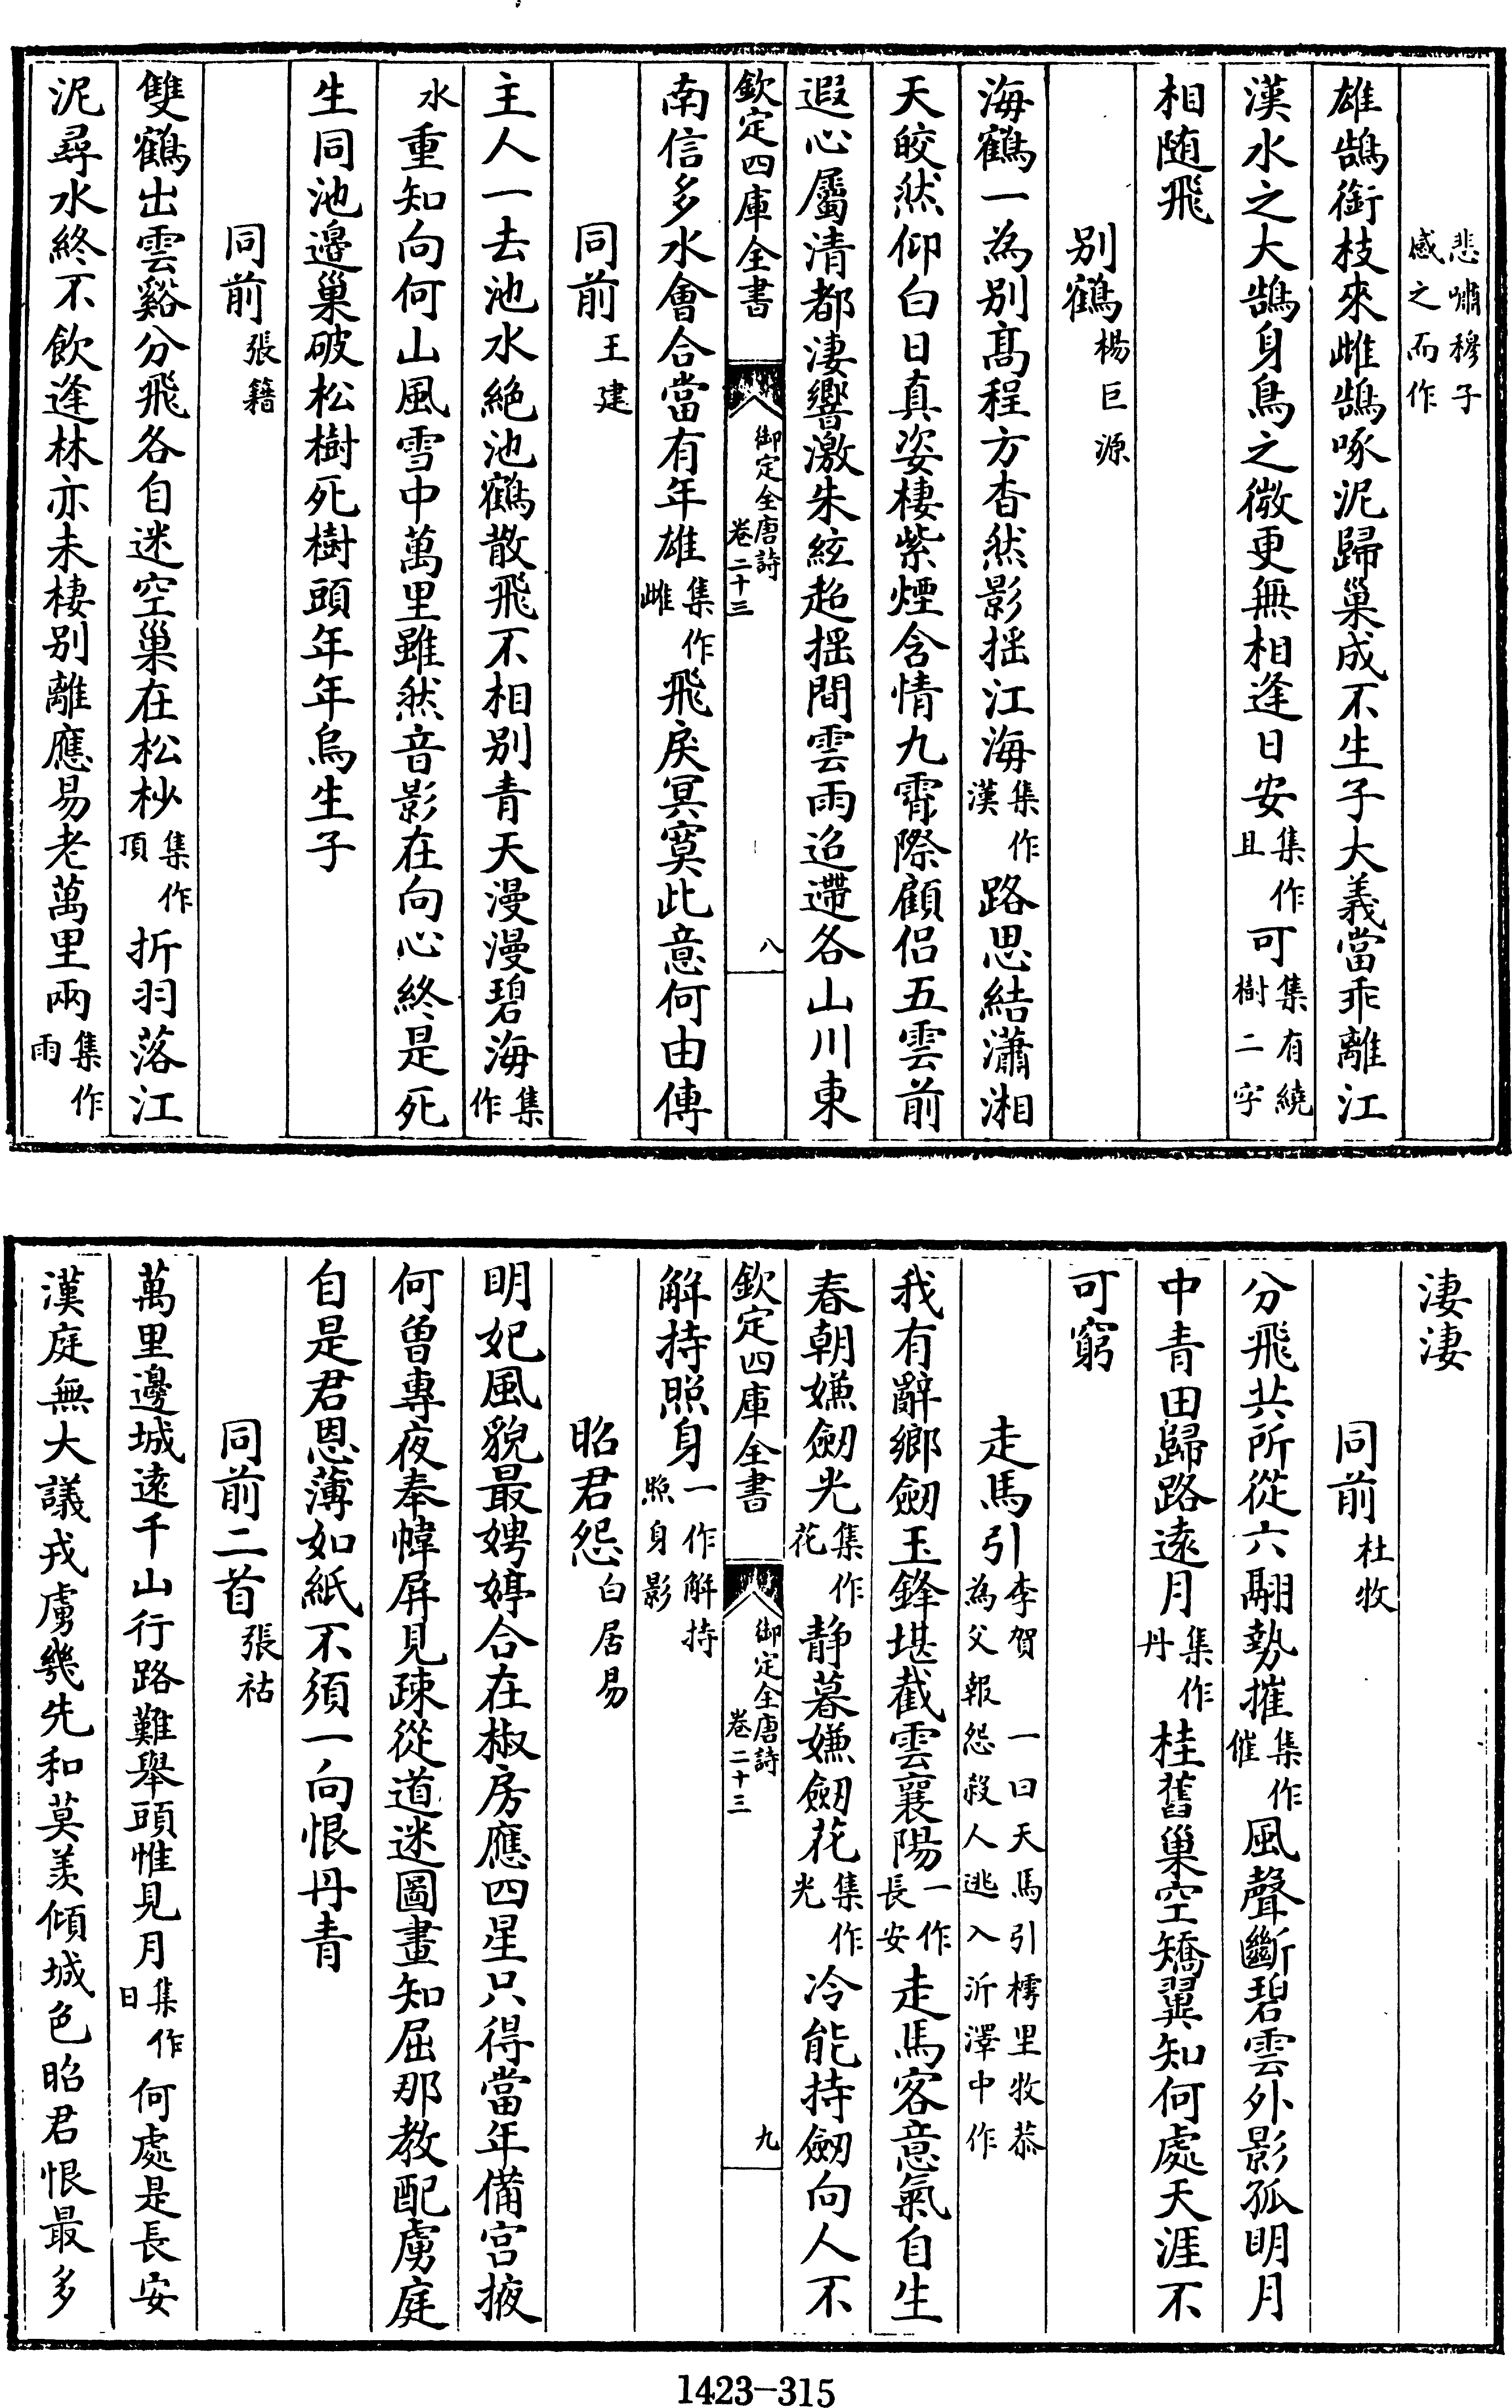 悲嘯穆子感之而作
雄鵠銜枝來雌鵠啄泥歸巢成不生子大義當乖離江
漢水之大鵠身鳥之微更無相逢日安集作且可集有繞樹二字
相随飛
别鶴楊巨源
海鶴一為别髙程方杳然影揺江海集作漢路思結瀟湘
天皎然仰白日真姿棲紫煙含情九霄際顧侣五雲前
遐心屬清都凄響激朱絃超揺間雲雨迢遰各山川東
欽定四庫全書
御定全唐詩
卷二十三
八
南信多水會合當有年雄集作雌飛戾冥寞此意何由傳
同前王建
主人一去池水絶池鶴散飛不相别青天漫漫碧海集作
水重知向何山風雪中萬里雖然音影在向心終是死
生同池邊巢破松樹死樹頭年年烏生子
同前張籍
雙鶴出雲谿分飛各自迷空巢在松杪集作頂折羽落江
泥尋水終不飲逢林亦未棲别離應易老萬里兩集作雨
凄凄
同前杜牧
分飛共所從六翮勢摧集作催風聲斷碧雲外影孤明月
中青田歸路遠月集作丹桂舊巢空矯翼知何處天涯不
可窮
走馬引李賀 一曰天馬引樗里牧恭為父報怨殺人逃入沂澤中作
我有辭鄉劒玉鋒堪截雲襄陽一作長安走馬客意氣自生
春朝嫌劒光集作花静暮嫌劒花集作光冷能持劒向人不
欽定四庫全書
御定全唐詩
卷二十三
九
解持照身一作解持照身影
昭君怨白居易
明妃風貌最娉婷合在椒房應四星只得當年備宫掖
何曽專夜奉幃屏見疎從道迷圖畫知屈那教配虜庭
自是君恩薄如紙不須一向恨丹青
同前二首張祜
萬里邊城遠千山行路難舉頭惟見月集作日何處是長安
漢庭無大議戎虜幾先和莫羨傾城色昭君恨最多
1423-315